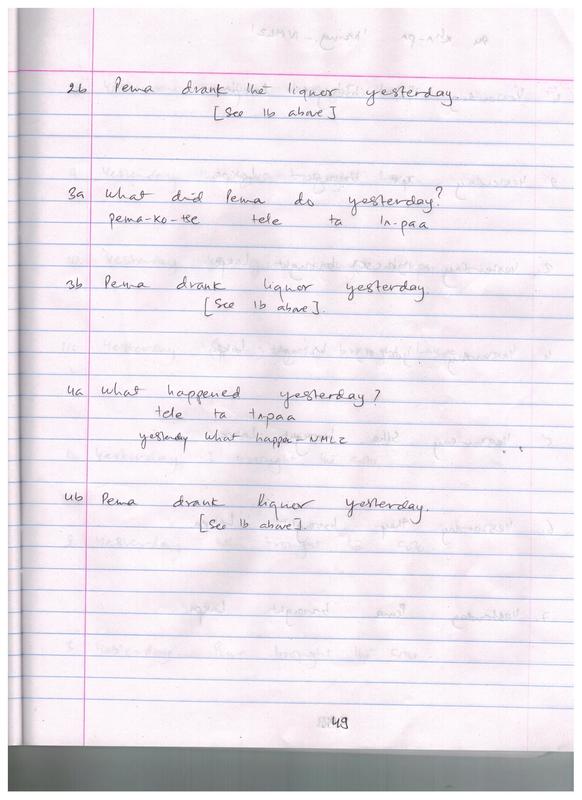 2b Pema drank the liquor yesterday.
[See 1b above]
3a What did Pema do yesterday?
pema-ko-tse tele ta lʌ-paa
3b Pema drank liquor yesterday
[See 1b above].
4a What happened yesterday?
tele ta tʌpaa
yesterday What happen-NMLZ
4b Pema drank liquor yesterday.
[See 1b above]
49